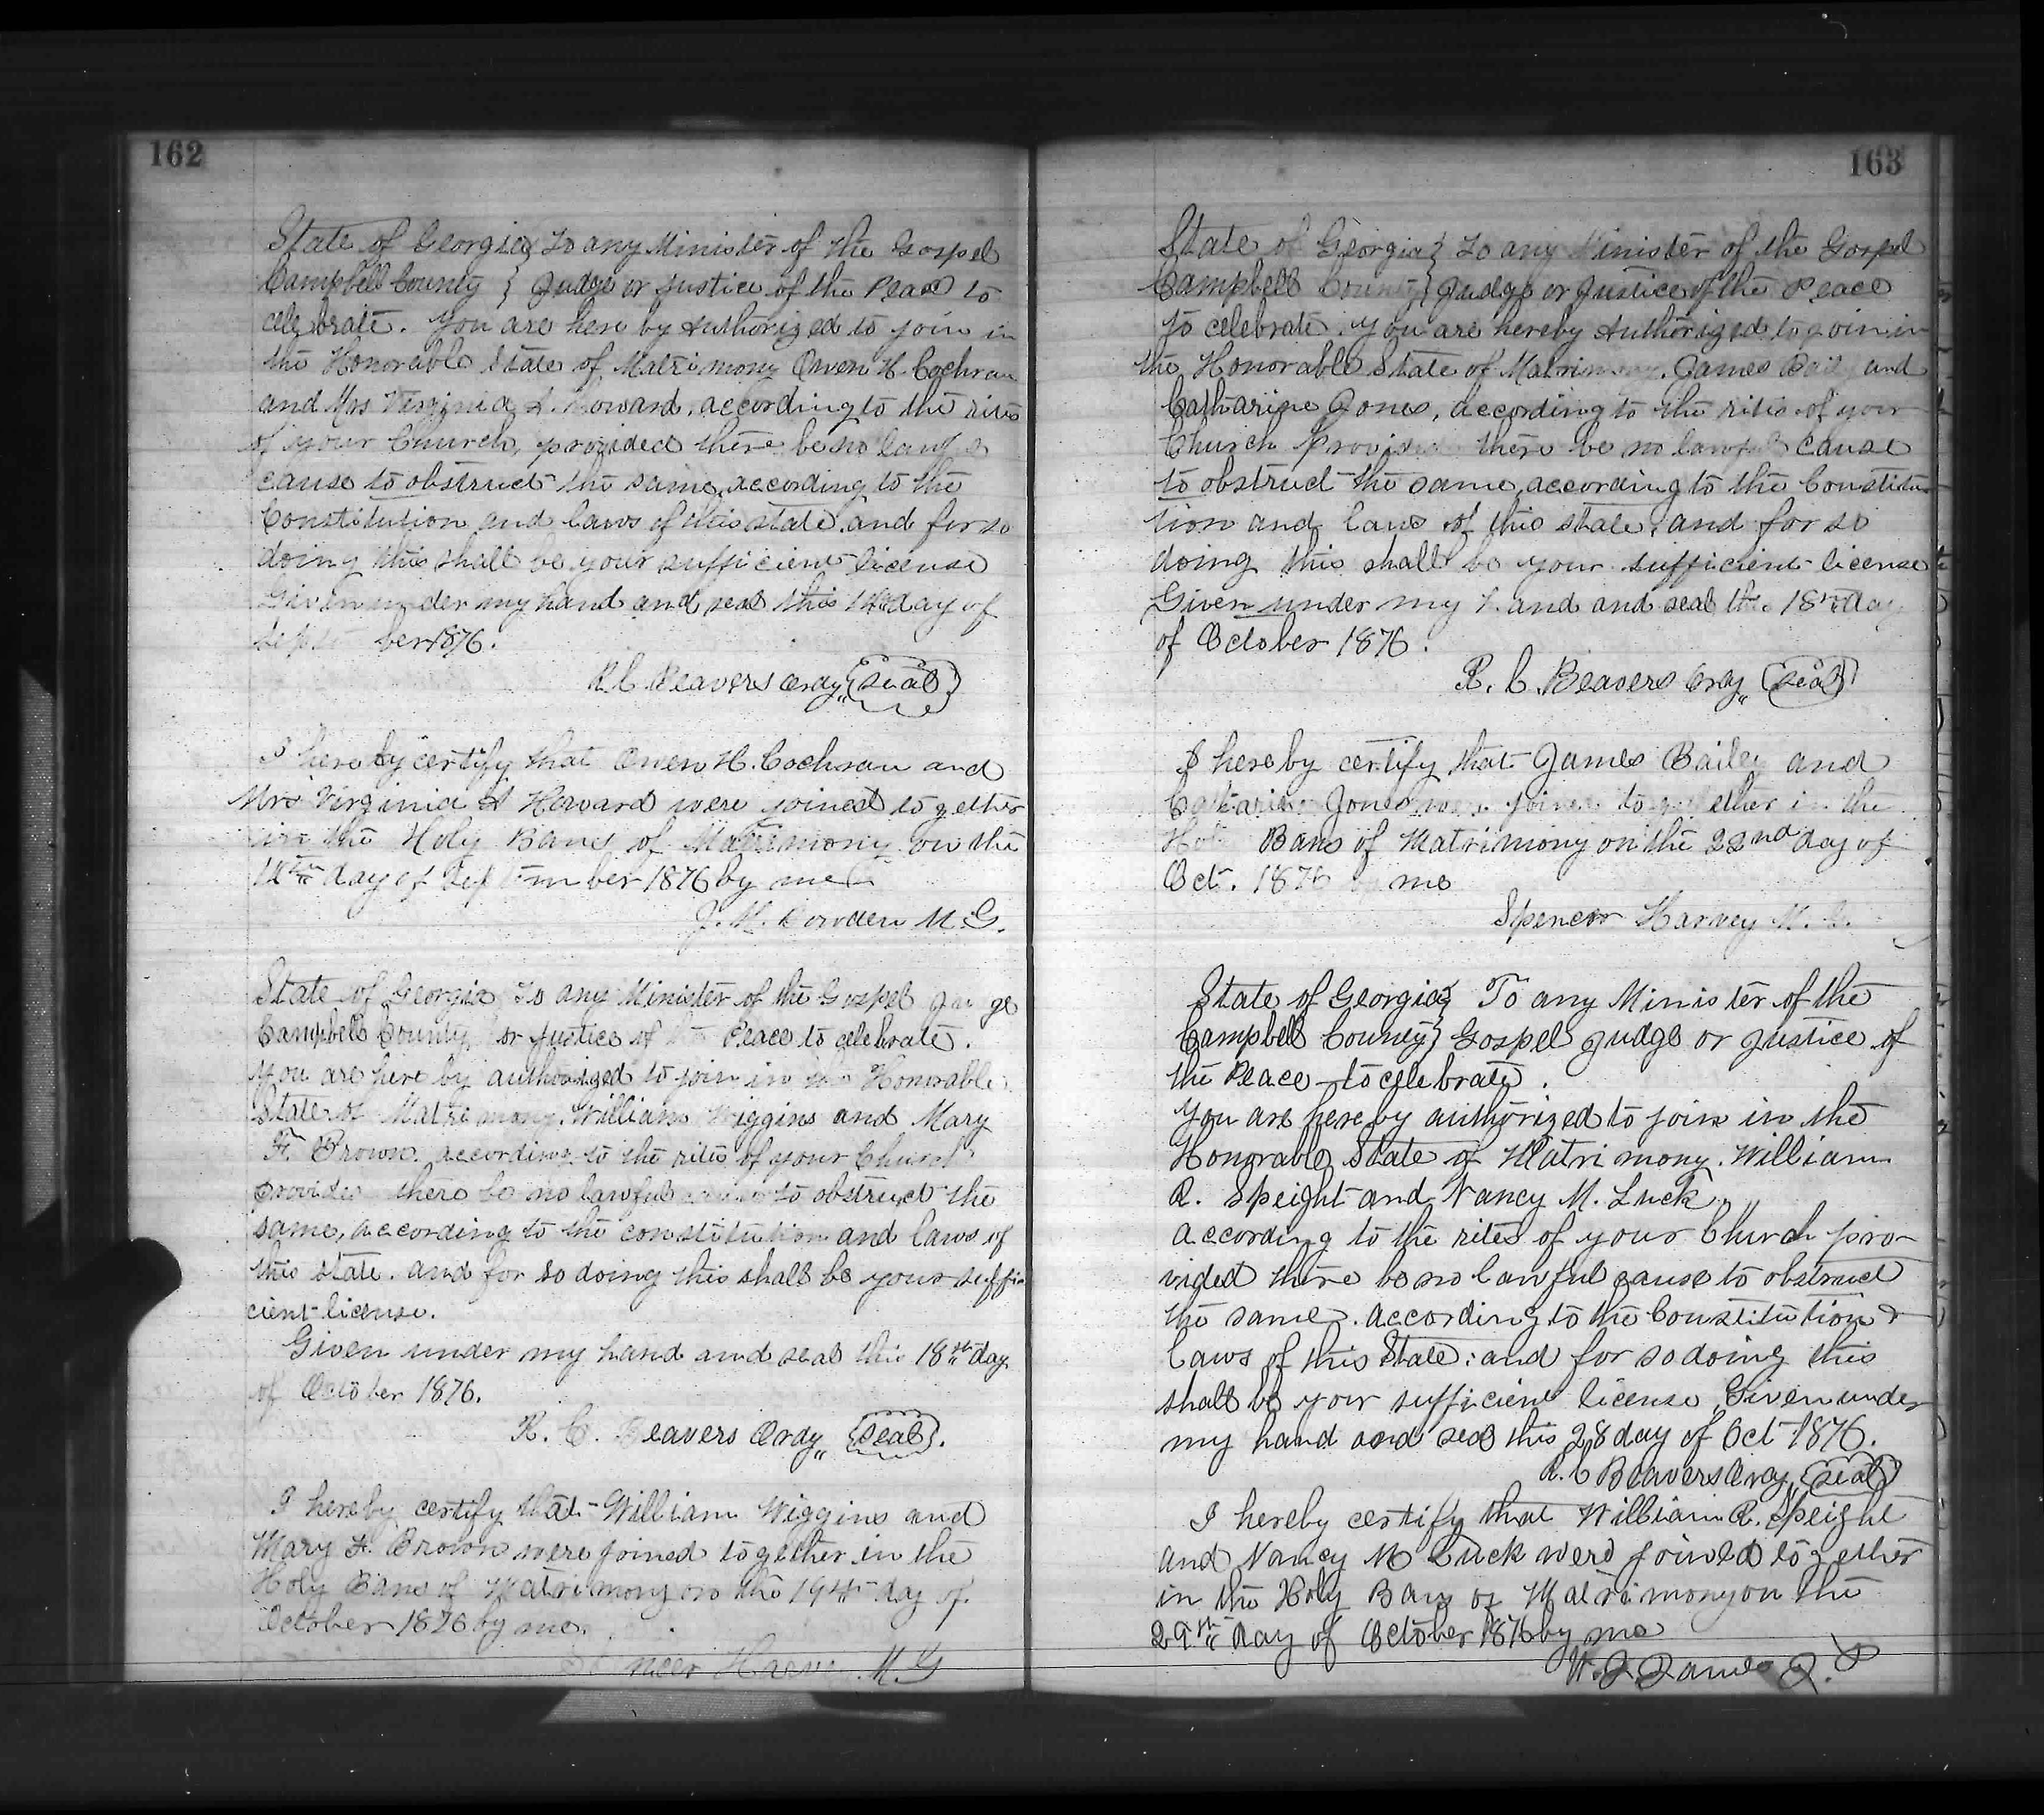 162
State of Georgia } To any Minister of the Gospel
Campbell County } Judge or Justice of the Peace to
celebrate. You are here by Authorized to join in
the Honorable State of Matrimony Owen H. Cochran
and Mrs Virginia Howard, according to the rites
of your Church, provided there be no lawful
cause to obstruct the same, according to the
Constitution and laws of this state, and for so
doing this shall be your sufficient license
Given under my hand and seal this 14th day of
September 1876.
R. C. Beavers Ordy (seal)
I here by certify that Owen H. Cochran and
Mrs Virginia Howard were joined together
in the Holy Bans of Matrimony on the
day of September 1876 by me
J. M. Bowden M.G.
State of Georgia To any Minister of the Gospel Judge
Campbell County or Justice of the Peace to celebrate.
You are here by authorized to join in the Honorable
State of Matrimony. William Wiggins and Mary
F. Brown. according to the rites of your Church
provided there be no lawful cause to obstruct the
same, according to the constitution and laws of
this state. and for so doing this shall be your suffi-
cient license.
Given under my hand and seal this 18th day
of October 1876.
R. C. Beavers Ordy (seal).
I hereby certify that William Wiggins and
Mary F. Brown were joined together in the
Holy Bans of Matrimony on the 19th day of
October 1876 by me.
Spencer Harvey M.G
163
State of Georgia } To any Minister of the Gospel
Campbell County } Judge or Justice of the Peace
to celebrate. You are hereby Authorized to join in
the Honorable State of Matrimony. James Baily and
Catharine Jones, according to the rites of your
Church provided there be no lawful cause
to obstruct the same, according to the Constitu-
tion and laws of this state, and for so
doing this shall be your sufficient license
Given under my hand and seal the 18th day
of October 1876.
R. C. Beavers Ordy (seal)
I hereby certify that James Bailey and
Catharine Jones were joined to gether in the
Holy Bans of Matrimony on the 22nd day of
Oct. 1876 by me
Spencer Harvey M. G.
State of Georgia } To any Minister of the
Campbell County } Gospel Judge or Justice of
the Peace to celebrate.
You are here by authorized to join in the
Honorable State of Matrimony. William
R. Speight and Nancy M. Luck
according to the rites of your Church pro-
vided there be no lawful cause to obstruct
the same. according to the Constitution &
laws of this State: and for so doing this
shall be your sufficient license, Given under
my hand and seal this 28 day of Oct 1876.
R. C Beavers Ordy (seal)
I hereby certify that William R. Speight
and Nancy M Luck were joined together
in the Holy Bans of Matrimony on the
29th day of October 1876 by me
W. J. James J. P